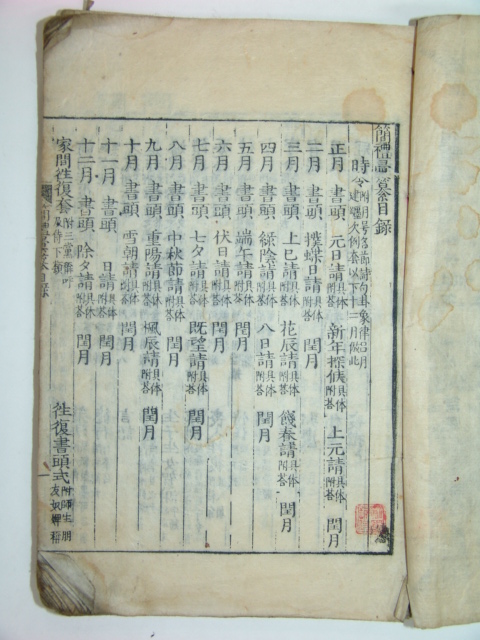 簡禮彙纂目錄
時令
正月 書頭 元日請具体附答 新年探候具体附答 上元請具体附答 閏月
二月 書頭 撲蝶日請具体附答 閏月
三月 書頭 上巳請具体附答 花辰請具体附答 餞春請具体附答 閏月
四月 書頭 綠陰請具体附答 八日請具体附答 閏月
五月 書頭 端午請具体附答 閏月
六月 書頭 伏日請具体附答 閏月
七月 書頭 七夕請具体附答 既望請具体附答 閏月
八月 書頭 中秋節請具体附答 閏月
九月 書頭 重陽請具体附答 楓辰請具体附答 閏月
十月 書頭 雪朝請具体附答 閏月
十一月 書頭 日請具体附答 閏月
十二月 書頭 除夕請具体附答 閏月
家間往復套 往復書頭式